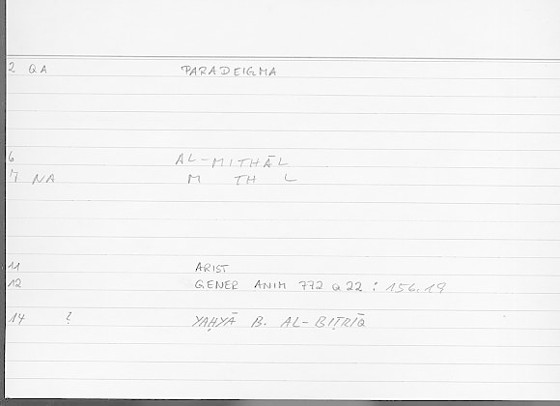 2 QA PARADEIGMA
6 AL-MITHĀL
7 NA M TH L
11 ARIST
12 GENER ANIM 772 a 22 : 156.19
14 ? YAḤYĀ B. AL-BIṬRĪQ